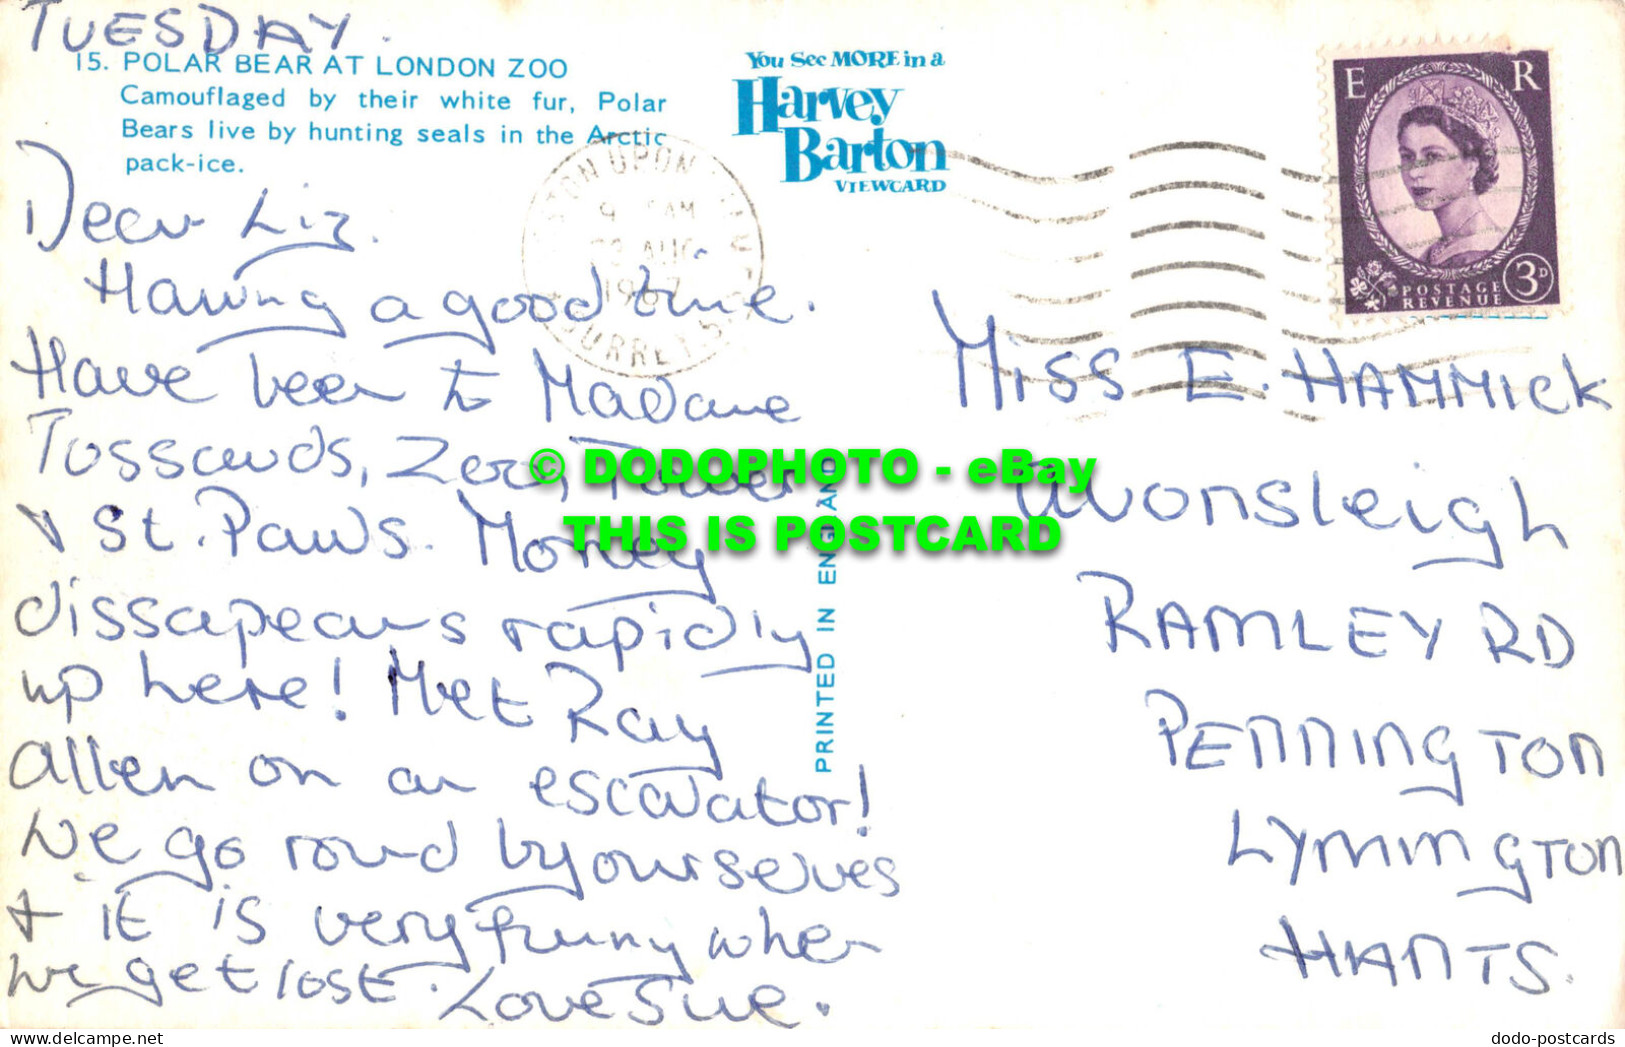 TUESDAY.
15. POLAR BEAR AT LONDON ZOO
Camouflaged by their white fur, Polar
Bears live by hunting seals in the Arctic
pack-ice.
You See MORE in a
Harvey
Barton
VIEWCARD
E R
POSTAGE
REVENUE
3D
UPON
AM
AUG
1967
SURREY
Dear Liz.
Having a good time.
Have been to Madame
Tussauds, Zoo, Tower
& St. Pauls. Money
dissapears rapidly
up here! Met Ray
Allen on an escalator!
We go round by ourselves
+ it is very funny when
we get lost. Love Sue.
PRINTED IN ENGLAND
MISS E. HAMMICK
Avonsleigh
RAMLEY RD
PENNINGTON
LYMINGTON
HANTS.
© DODOPHOTO - eBay
THIS IS POSTCARD
dodo-postcards